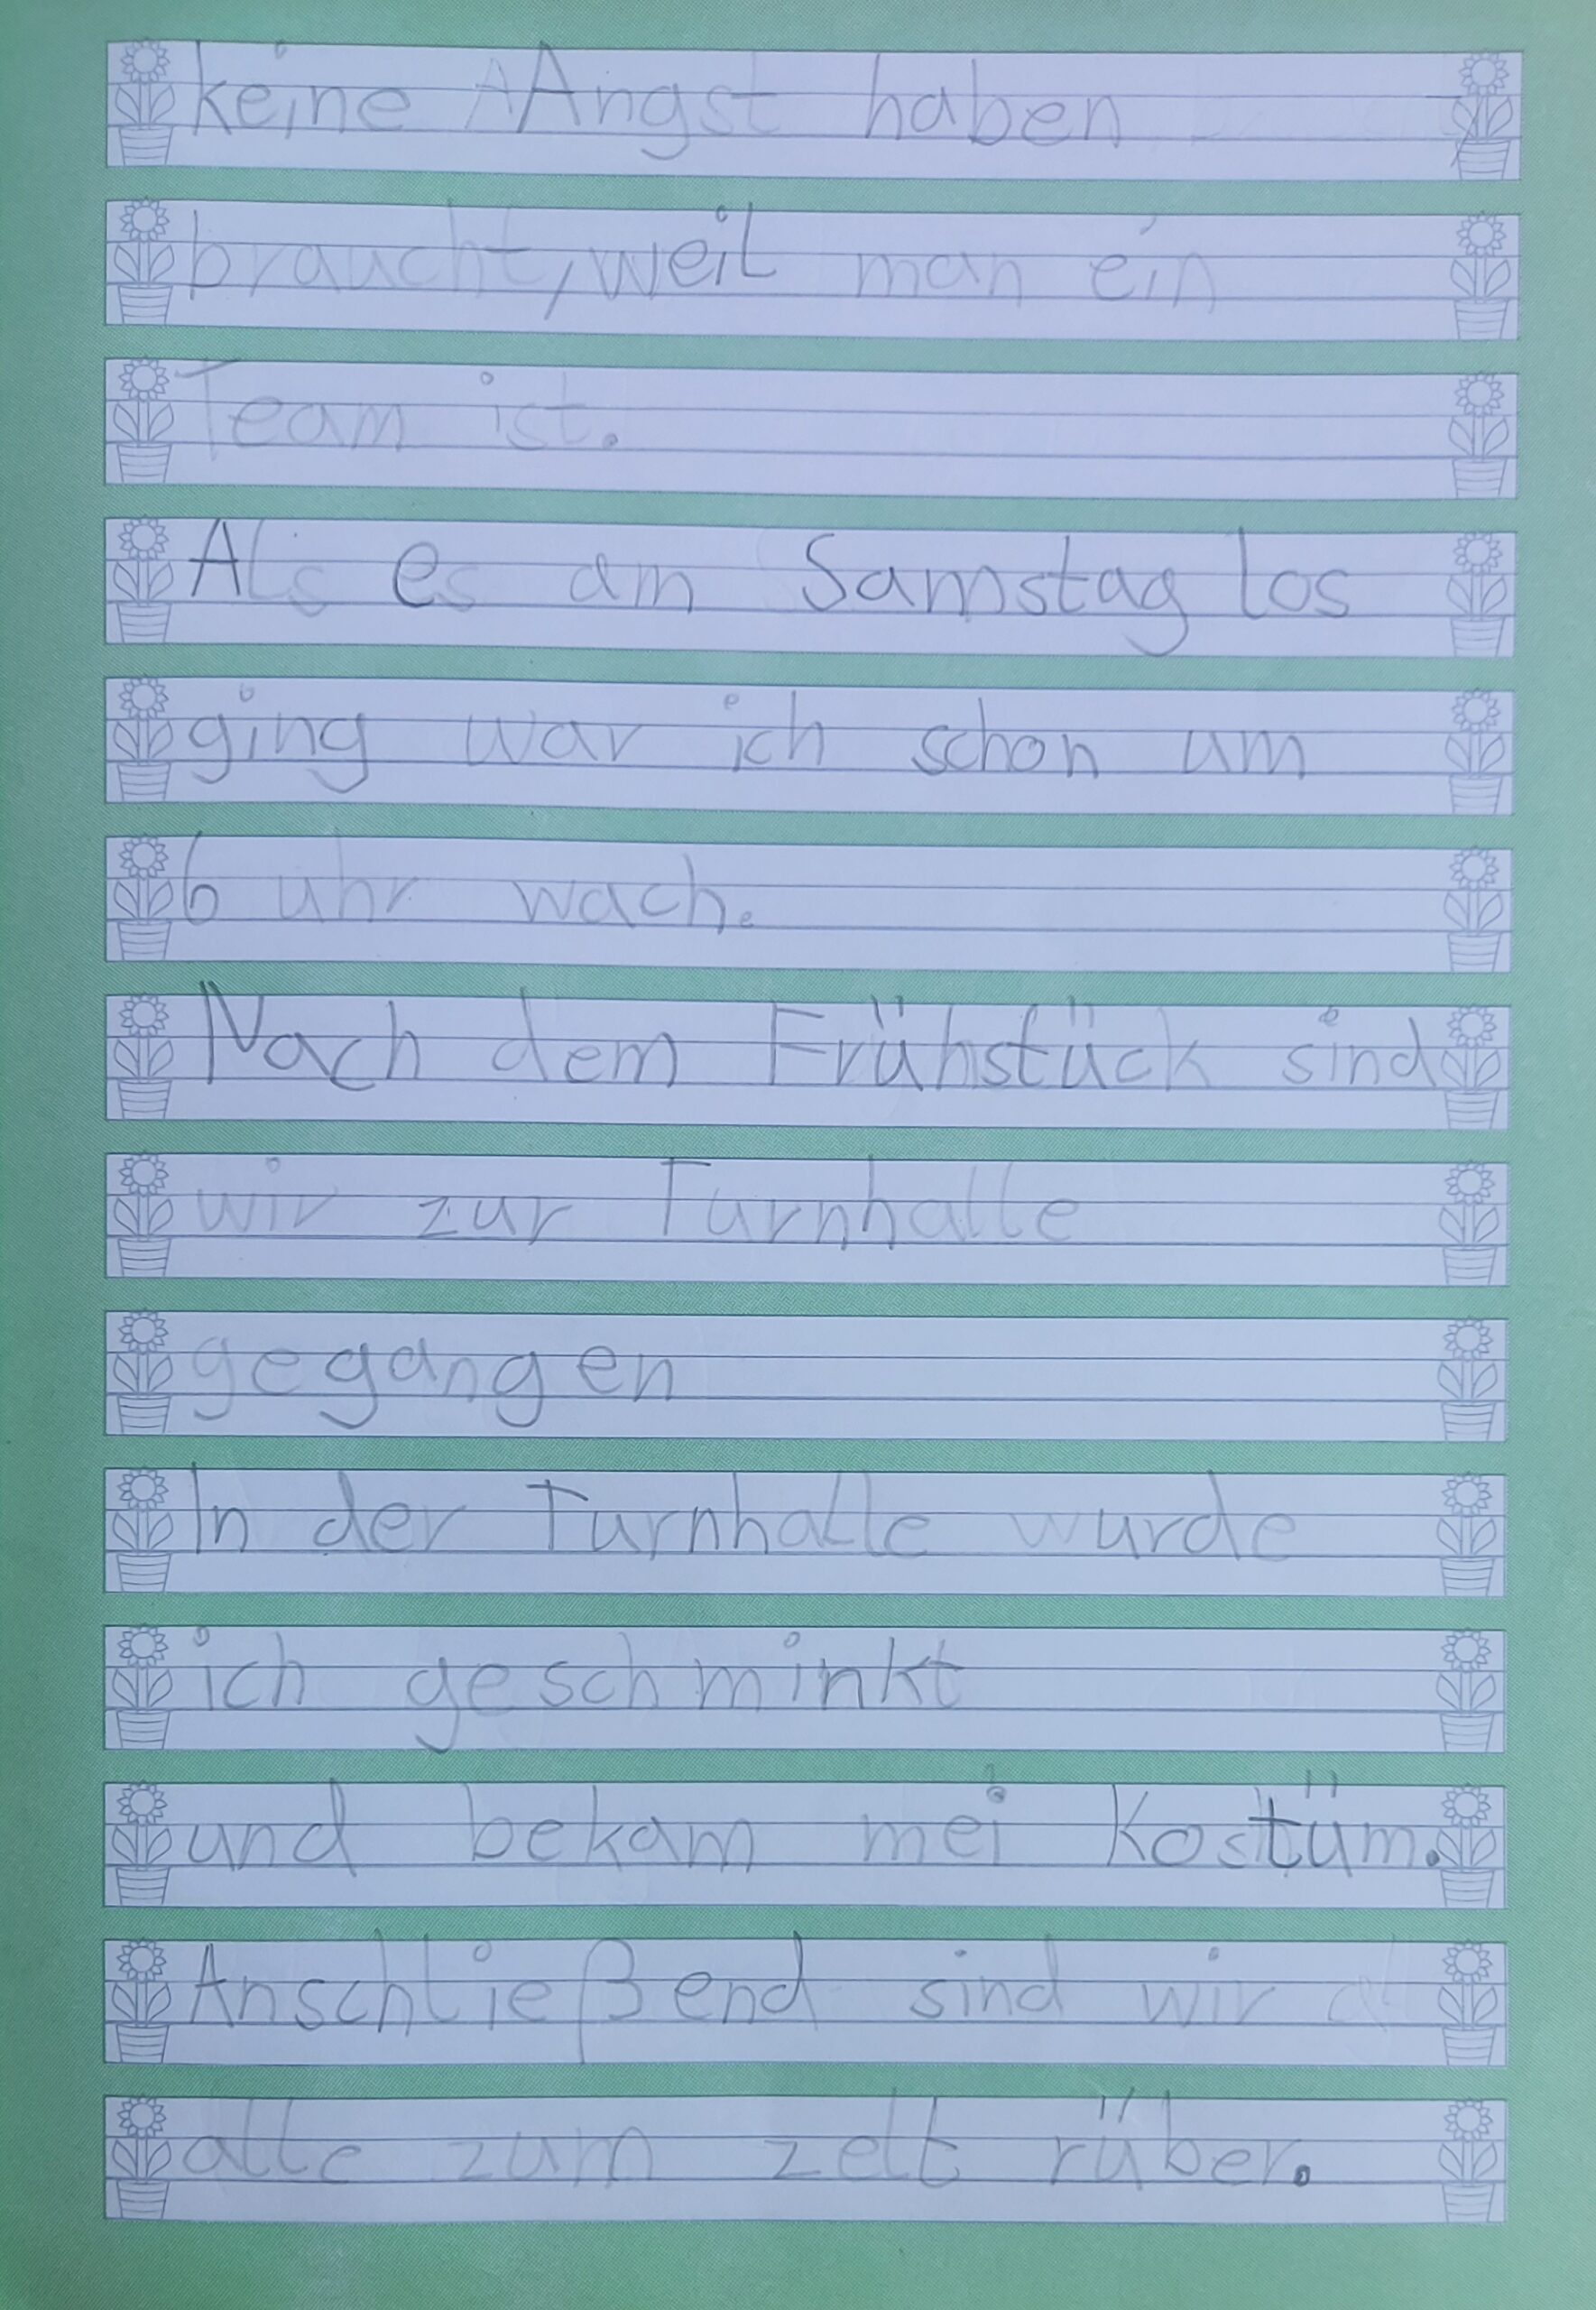 keine AAngst haben
braucht, weil man ein
Team ist.
Als es am Samstag los
ging war ich schon um
6 uhr wach.
Nach dem Frühstück sind
wir zur Turnhalle
gegangen
In der Turnhalle wurde
ich geschminkt
und bekam mei Kostüm.
Anschließend sind wir a
alle zum zelt rüber.